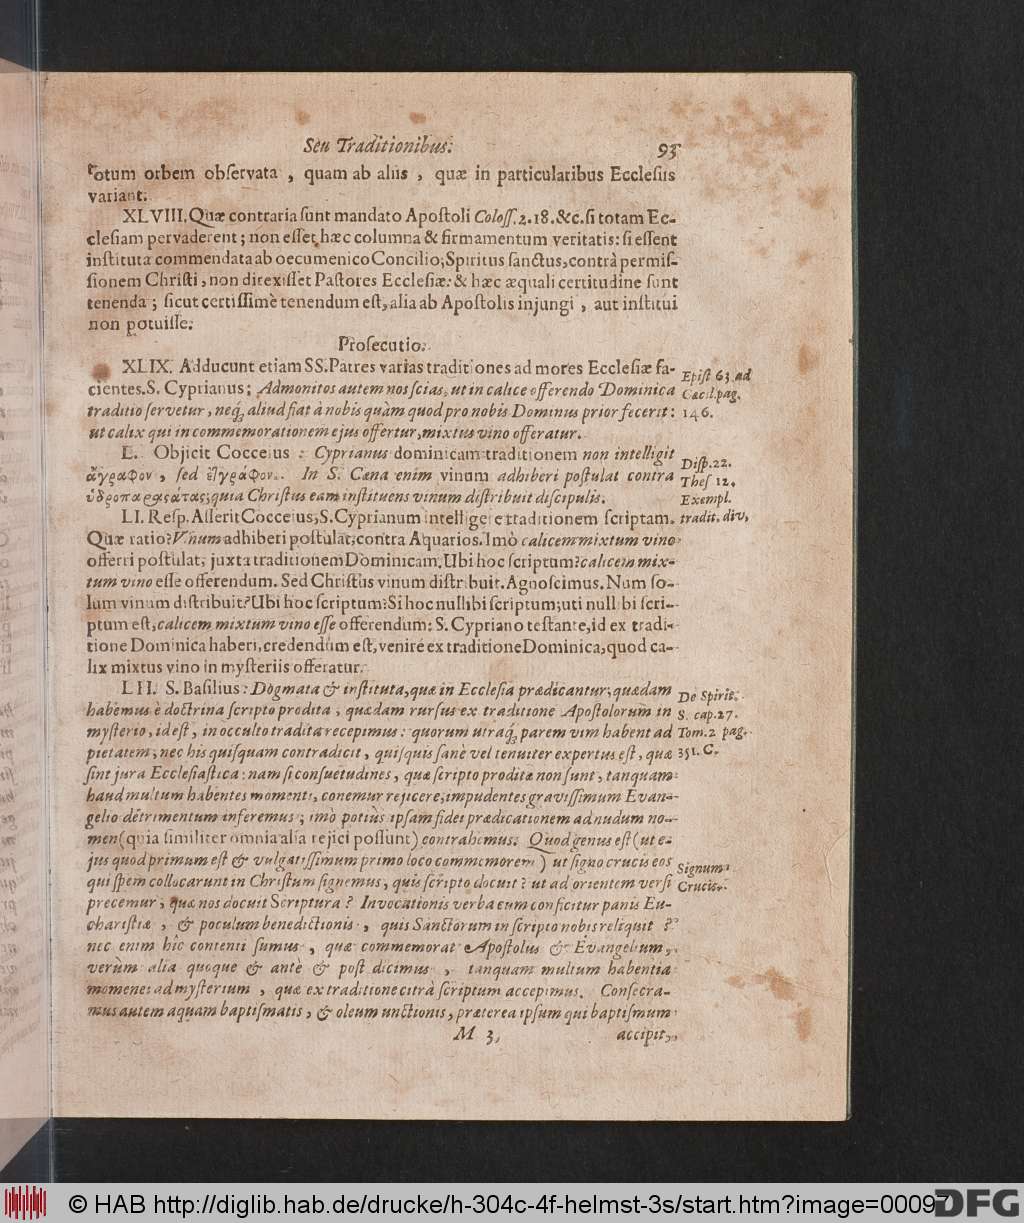 Seu Traditionibus. 93
totum orbem obſervata, quam ab aliis, quæ in particularibus Eccleſiis
variant.
XLVIII. Quæ contraria ſunt mandato Apoſtoli Coloſſ. 2. 18. &c. ſi totam Ec-
cleſiam pervaderent; non eſſet hæc columna & firmamentum veritatis: ſi eſſent
inſtituta commendata ab oecumenico Concilio; Spiritus ſanctus, contrà permiſ-
ſionem Chriſti, non direxiſſet Paſtores Eccleſiæ: & hæc æquali certitudine ſunt
tenenda; ſicut certiſſimè tenendum eſt, alia ab Apoſtolis injungi, aut inſtitui
non potuiſſe.
Proſecutio.
XLIX. Adducunt etiam SS. Patres varias traditiones ad mores Eccleſiæ fa-
cientes. S. Cyprianus: Admonitos autem nos ſcias, ut in calice offerendo Dominica
traditio ſervetur, neq; aliud fiat à nobis quàm quod pro nobis Dominus prior fecerit:
ut calix qui in commemorationem ejus offertur, mixtus vino offeratur.
Epiſt 63. ad
Cæcil. pag.
146.
L. Objicit Cocceius: Cyprianus dominicam traditionem non intelligit
ἄγραφον, ſed ἔγγραφον. In S. Cœna enim vinum adhiberi poſtulat contra
ὑδροπαραςάτας; quia Chriſtus eam inſtituens vinum diſtribuit diſcipulis.
Diſp. 22.
Theſ 12.
Exempl.
tradit. div.
LI. Reſp. Aſſerit Cocceius, S. Cyprianum intelligere traditionem ſcriptam.
Quæ ratio? Vinum adhiberi poſtulat, contra Aquarios. Imò calicem mixtum vino
offerri poſtulat, juxta traditionem Dominicam. Ubi hoc ſcriptum? calicem mix-
tum vino eſſe offerendum. Sed Chriſtus vinum diſtribuit. Agnoſcimus. Num ſo-
lum vinum diſtribuit? Ubi hoc ſcriptum? Si hoc nullibi ſcriptum; uti nullibi ſcri-
ptum eſt, calicem mixtum vino eſſe offerendum: S. Cypriano teſtante, id ex tradi-
tione Dominica haberi, credendum eſt, venire ex traditione Dominica, quod ca-
lix mixtus vino in myſteriis offeratur.
LII. S. Baſilius: Dogmata & inſtituta, quæ in Eccleſia prædicantur, quædam
habemus è doctrina ſcripto prodita, quædam rurſus ex traditione Apoſtolorum in
myſterio, id eſt, in occulto tradita recepimus: quorum utraq; parem vim habent ad
pietatem; nec his quiſquam contradicit, quiſquis ſanè vel tenuiter expertus eſt, quæ
ſint jura Eccleſiaſtica: nam ſi conſuetudines, quæ ſcripto proditæ non ſunt, tanquam
haud multum habentes momenti, conemur rejicere, impudentes graviſſimum Evan-
gelio detrimentum inferemus; imò potiùs ipſam fidei prædicationem ad nudum no-
men (quia ſimiliter omnia alia rejici poſſunt) contrahemus. Quod genus eſt (ut e-
jus quod primum eſt & vulgatiſſimum primo loco commemorem) ut ſigno crucis eos
qui ſpem collocarunt in Chriſtum ſignemus, quis ſcripto docuit? ut ad orientem verſi
precemur, quæ nos docuit Scriptura? Invocationis verba cum conficitur panis Eu-
chariſtiæ, & poculum benedictionis, quis Sanctorum in ſcripto nobis reliquit?
nec enim hîc contenti ſumus, quæ commemorat Apoſtolus & Evangelium,
verùm alia quoque & antè & poſt dicimus, tanquam multum habentia
momenti ad myſterium, quæ ex traditione citrà ſcriptum accepimus. Conſecra-
mus autem aquam baptiſmatis, & oleum unctionis, præterea ipſum qui baptiſmum
De Spirit.
S. cap. 27.
Tom. 2 pag.
351. C.
Signum
Crucis.
M 3 accipit,
© HAB http://diglib.hab.de/drucke/h-304c-4f-helmst-3s/start.htm?image=00097
DFG